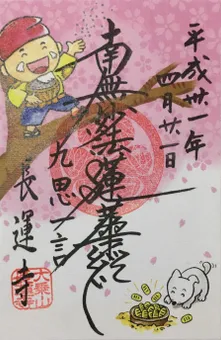 平成卅一年
四月廿一日
南無妙法蓮華経
九思一言
長運寺
大乗山